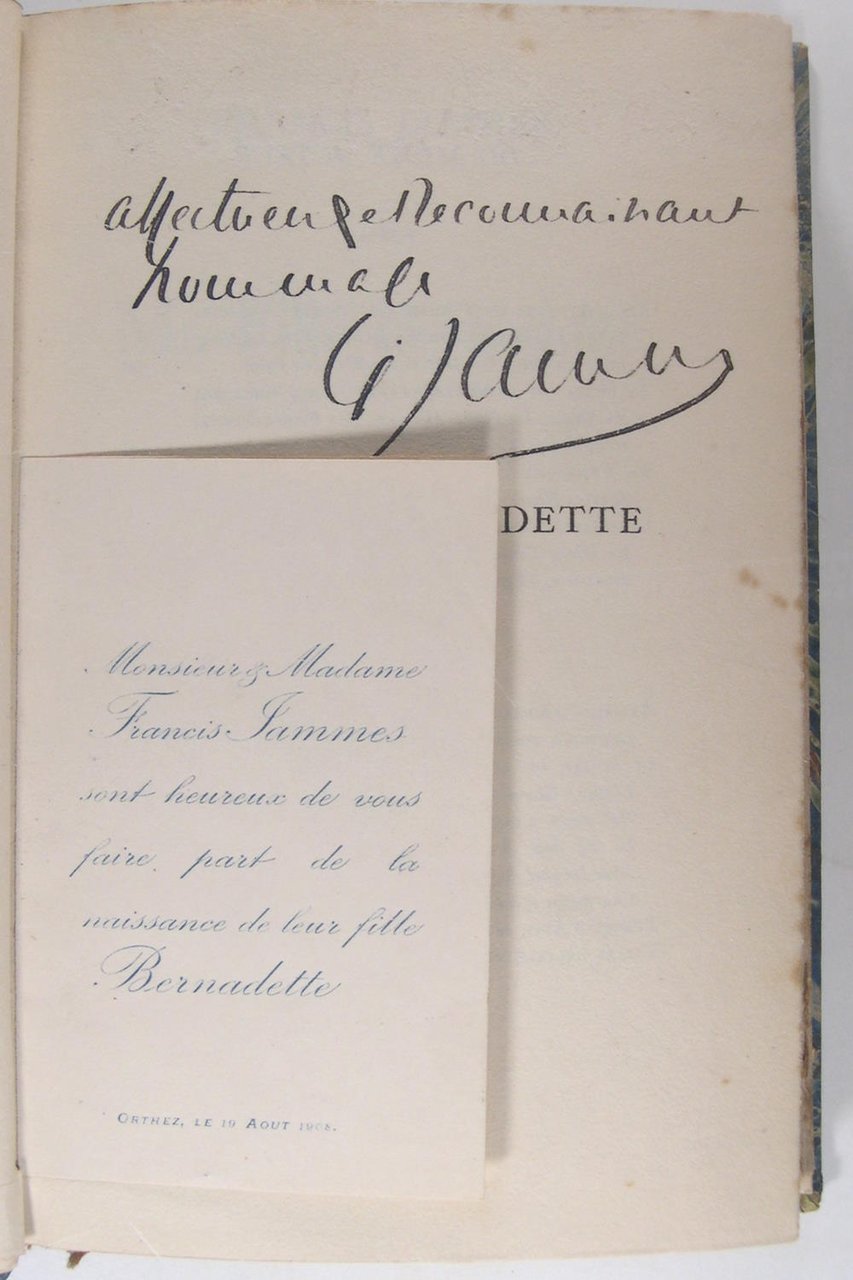 affectueux et Reconnaissant
hommage
F Jammes
DETTE
Monsieur & Madame
Francis Jammes
sont heureux de vous
faire part de la
naissance de leur fille
Bernadette
ORTHEZ, LE 19 AOUT 1908.